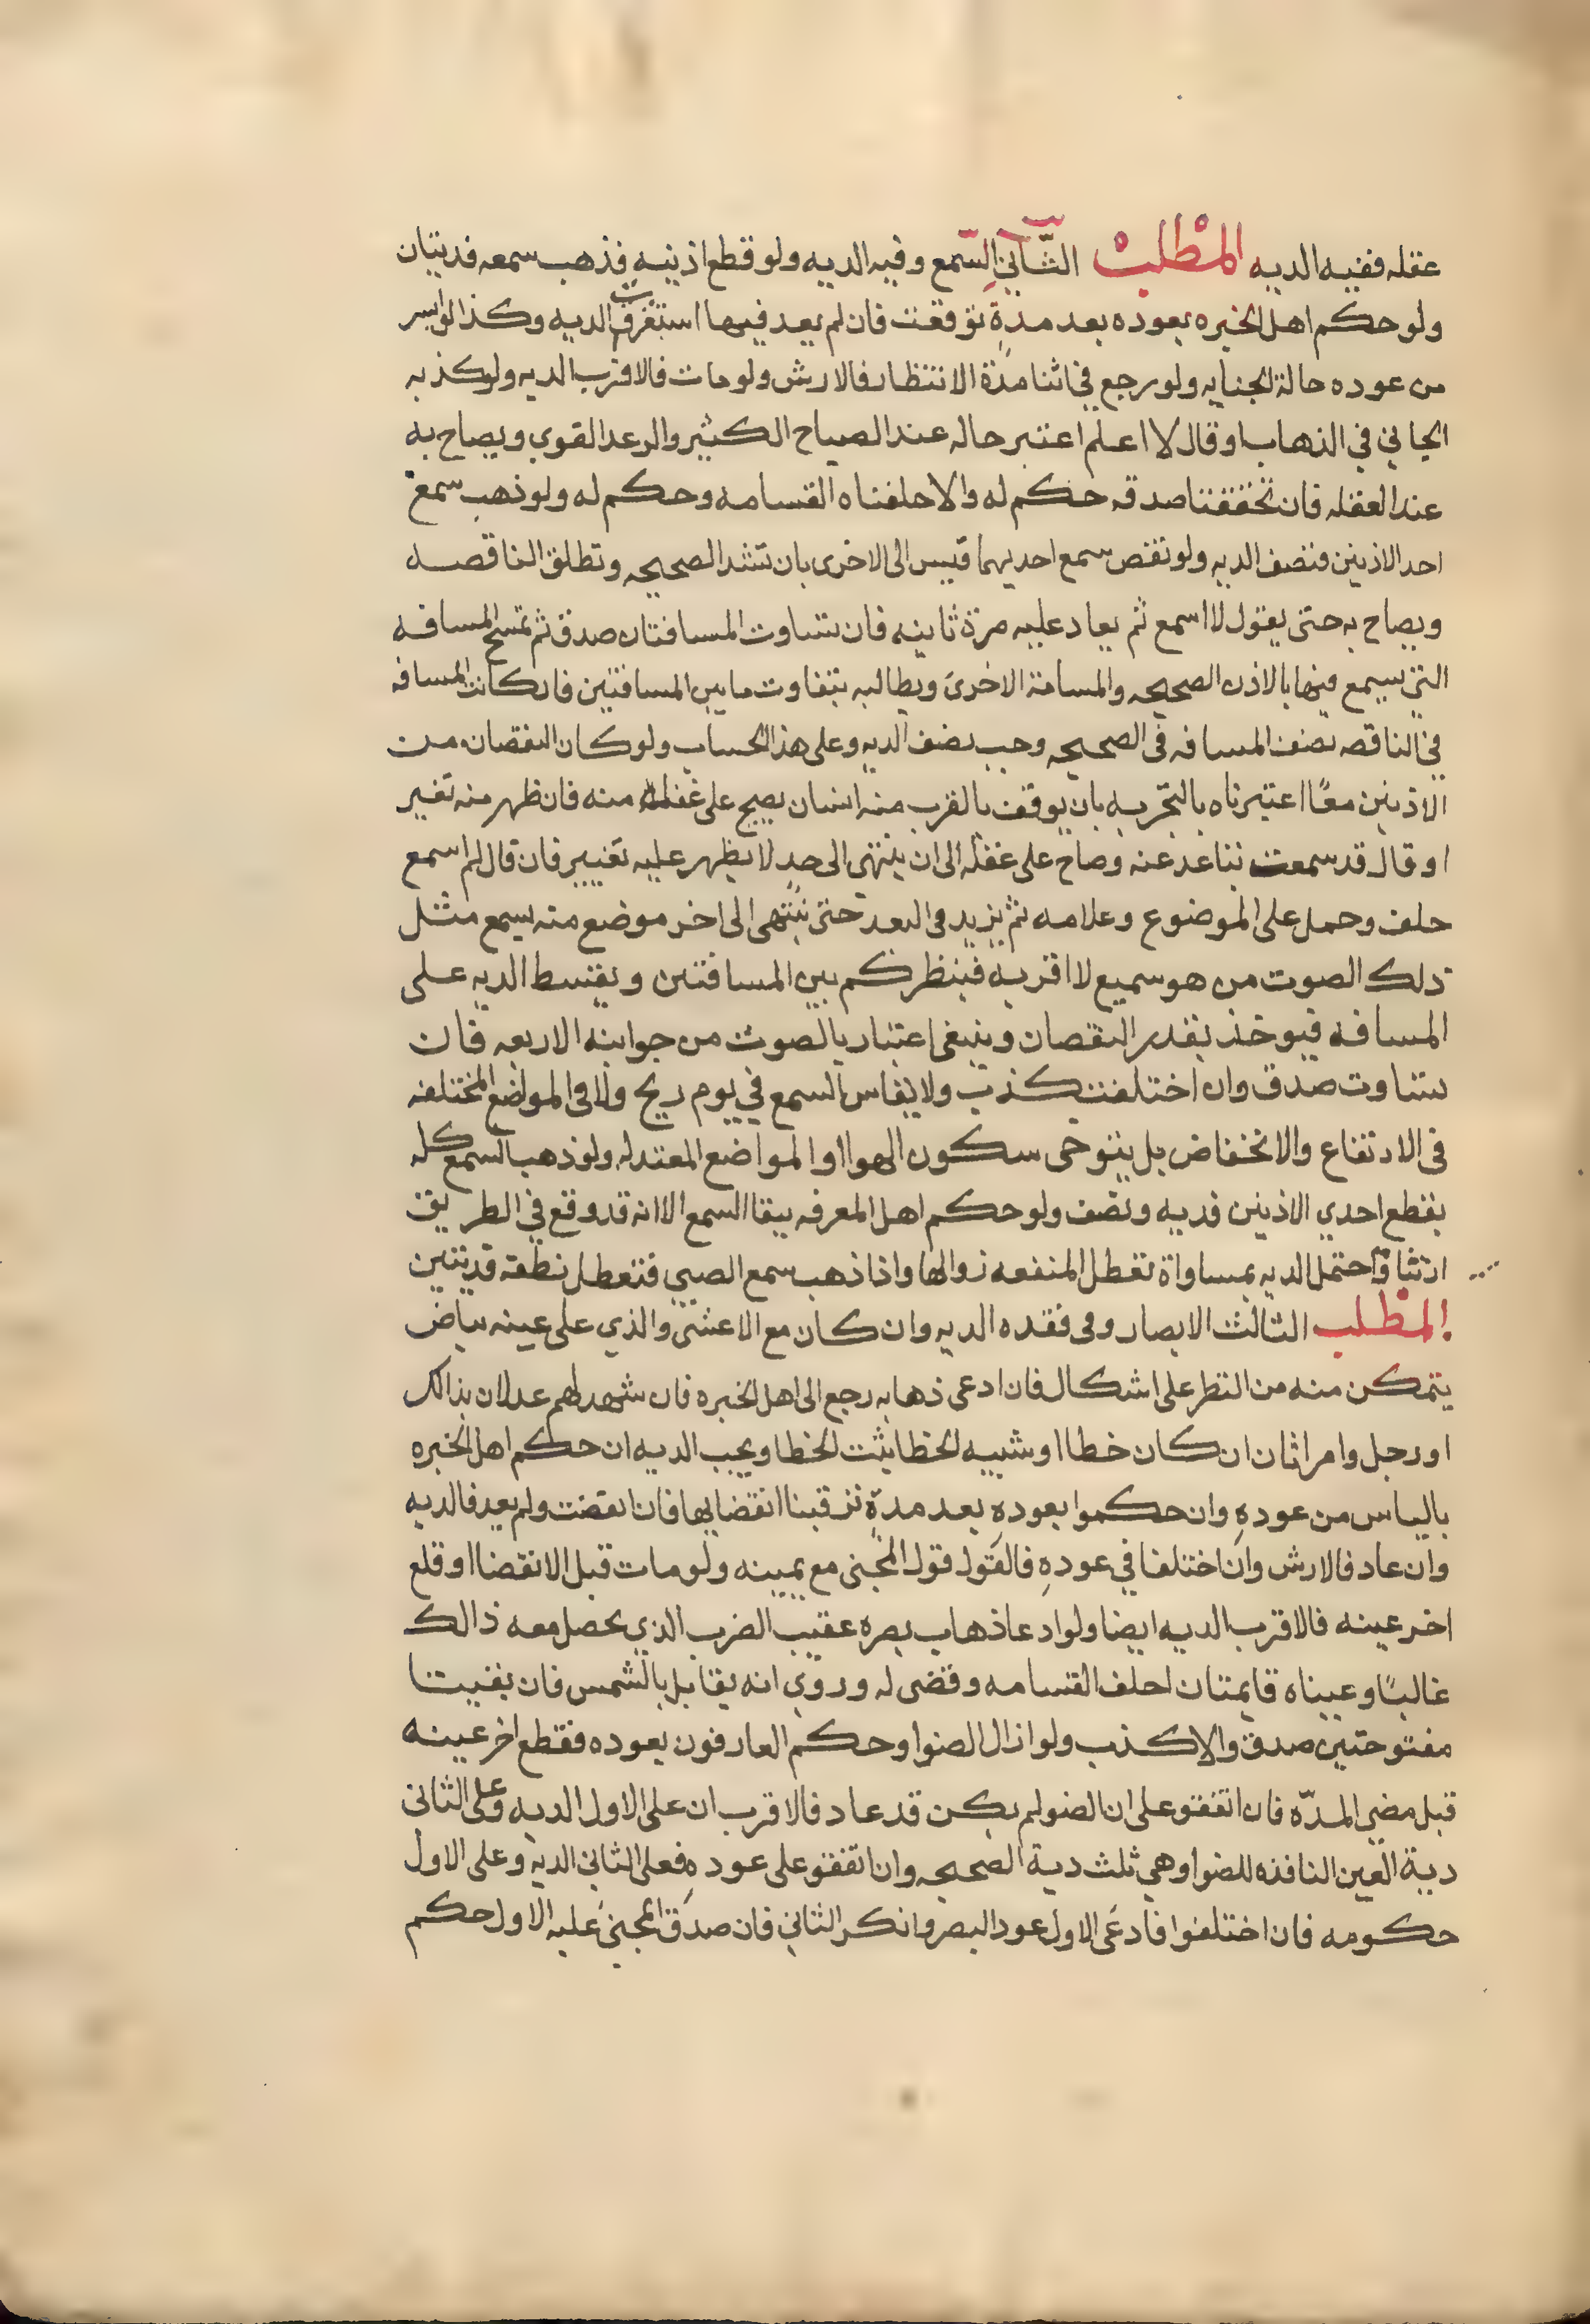 عقله ففيه الديه المطلب الثاني السمع وفيه الديه ولو قطع اذنيه فذهب سمعه فديتان
ولو حكم اهل الخبره بعوده بعد مدة توقعت فان لم يعد فيها استقرت الديه وكذا لوايس
من عوده حالة الجنايه ولو رجع في اثنا مدة الانتظار فالارش ولو مات فالاقرب الديه ولو كذبه
الجاني في الذهاب او قال لا اعلم اعتبر حاله عند الصياح الكثير والرعد القوي ويصاح به
عند الغفله فان تحققنا صدقه حكم له والا حلفناه القسامه وحكم له ولو ذهب سمع
احد الاذنين فنصف الديه ولو نقص سمع احديهما قيس الى الاخرى بان تشد الصحيحه وتطلق الناقصه
ويصاح به حتى يقول لا اسمع ثم يعاد عليه مرة ثانيه فان تساوت المسافتان صدق ثم تمسح المسافه
التي يسمع فيها بالاذن الصحيحه والمسافة الاخرى ويطالبه بتفاوت مابين المسافتين فان كانت المسافه
في الناقصه نصف المسافه في الصحيحه وجب نصف الديه وعلى هذا الحساب ولو كان النقصان من
الاذنين معًا اعتبرناه بالتجربه بان يوقف بالقرب منه انسان يصيح على غفلة منه فان ظهر منه تغير
او قال قد سمعت تباعد عنه وصاح على غفلة الى ان ينتهى الى حد لا يظهر عليه تغيير فان قال لم اسمع
حلف وحمل على الموضوع وعلامه ثم يزيد فى البعد حتى ينتهى الى اخر موضع منه يسمع مثل
ذلك الصوت من هو سميع لا اقربه فينظر كم بين المسافتين ويقسط الديه على
المسافه فيوخذ بقدر النقصان وينبغى اعتباره بالصوت من جوانبه الاربعه فان
تساوت صدق وان اختلفت كذب ولا يقاس السمع في يوم ريح ولا فى المواضع المختلفه
فى الارتفاع والانخفاض بل يتوخى سكون الهوا او المواضع المعتدله ولو ذهب السمع كله
بقطع احدي الاذنين فديه ونصف ولو حكم اهل المعرفه ببقا السمع الا انه قد وقع في الطريق
ارتتاق احتمل الديه بمساواة تعطل المنفعه زوالها واذا ذهب سمع الصبي فتعطل نطقه فديتين
المطلب الثالث الابصار وفى فقده الديه وان كان مع الاعشى والذي على عينه بياض
يتمكن منه من النظر على اشكال فان ادعى ذهابه رجع الى اهل الخبره فان شهد لهم عدلان بذالك
او رجل وامراتان ان كان خطا او شبيه الخطا يثت الخطا ويجب الديه ان حكم اهل الخبره
بالياس من عوده وان حكموا بعوده بعد مدة ترقبنا انقضايها فان انقضت ولم يعد فالديه
وان عاد فالارش وان اختلفا في عوده فالقول قول المجنى مع يمينه ولو مات قبل الانقضا او قلع
اخر عينه فالاقرب الديه ايضا ولو ادعا ذهاب بصره عقيب الضرب الذي يحصل معه ذالك
غالبًا وعيناه قايمتان احلف القسامه وقضى له وروي انه يقابل بالشمس فان بقيتا
مفتوحتين صدق والا كذب ولو ازال الضوا وحكم العارفون بعوده فقطع اخر عينه
قبل مضى المدّه فان اتفقو على ان الضو لم يكن قد عاد فالاقرب ان على الاول الديه وعلى الثانى
دية العين النافذه للضوا وهي ثلث دية الصحيحه وان اتفقو على عوده فعلى الثاني الديه وعلى الاول
حكومه فان اختلفوا فادعى الاول عود البصر وانكر الثاني فان صدق المجنى عليه الاول حكم